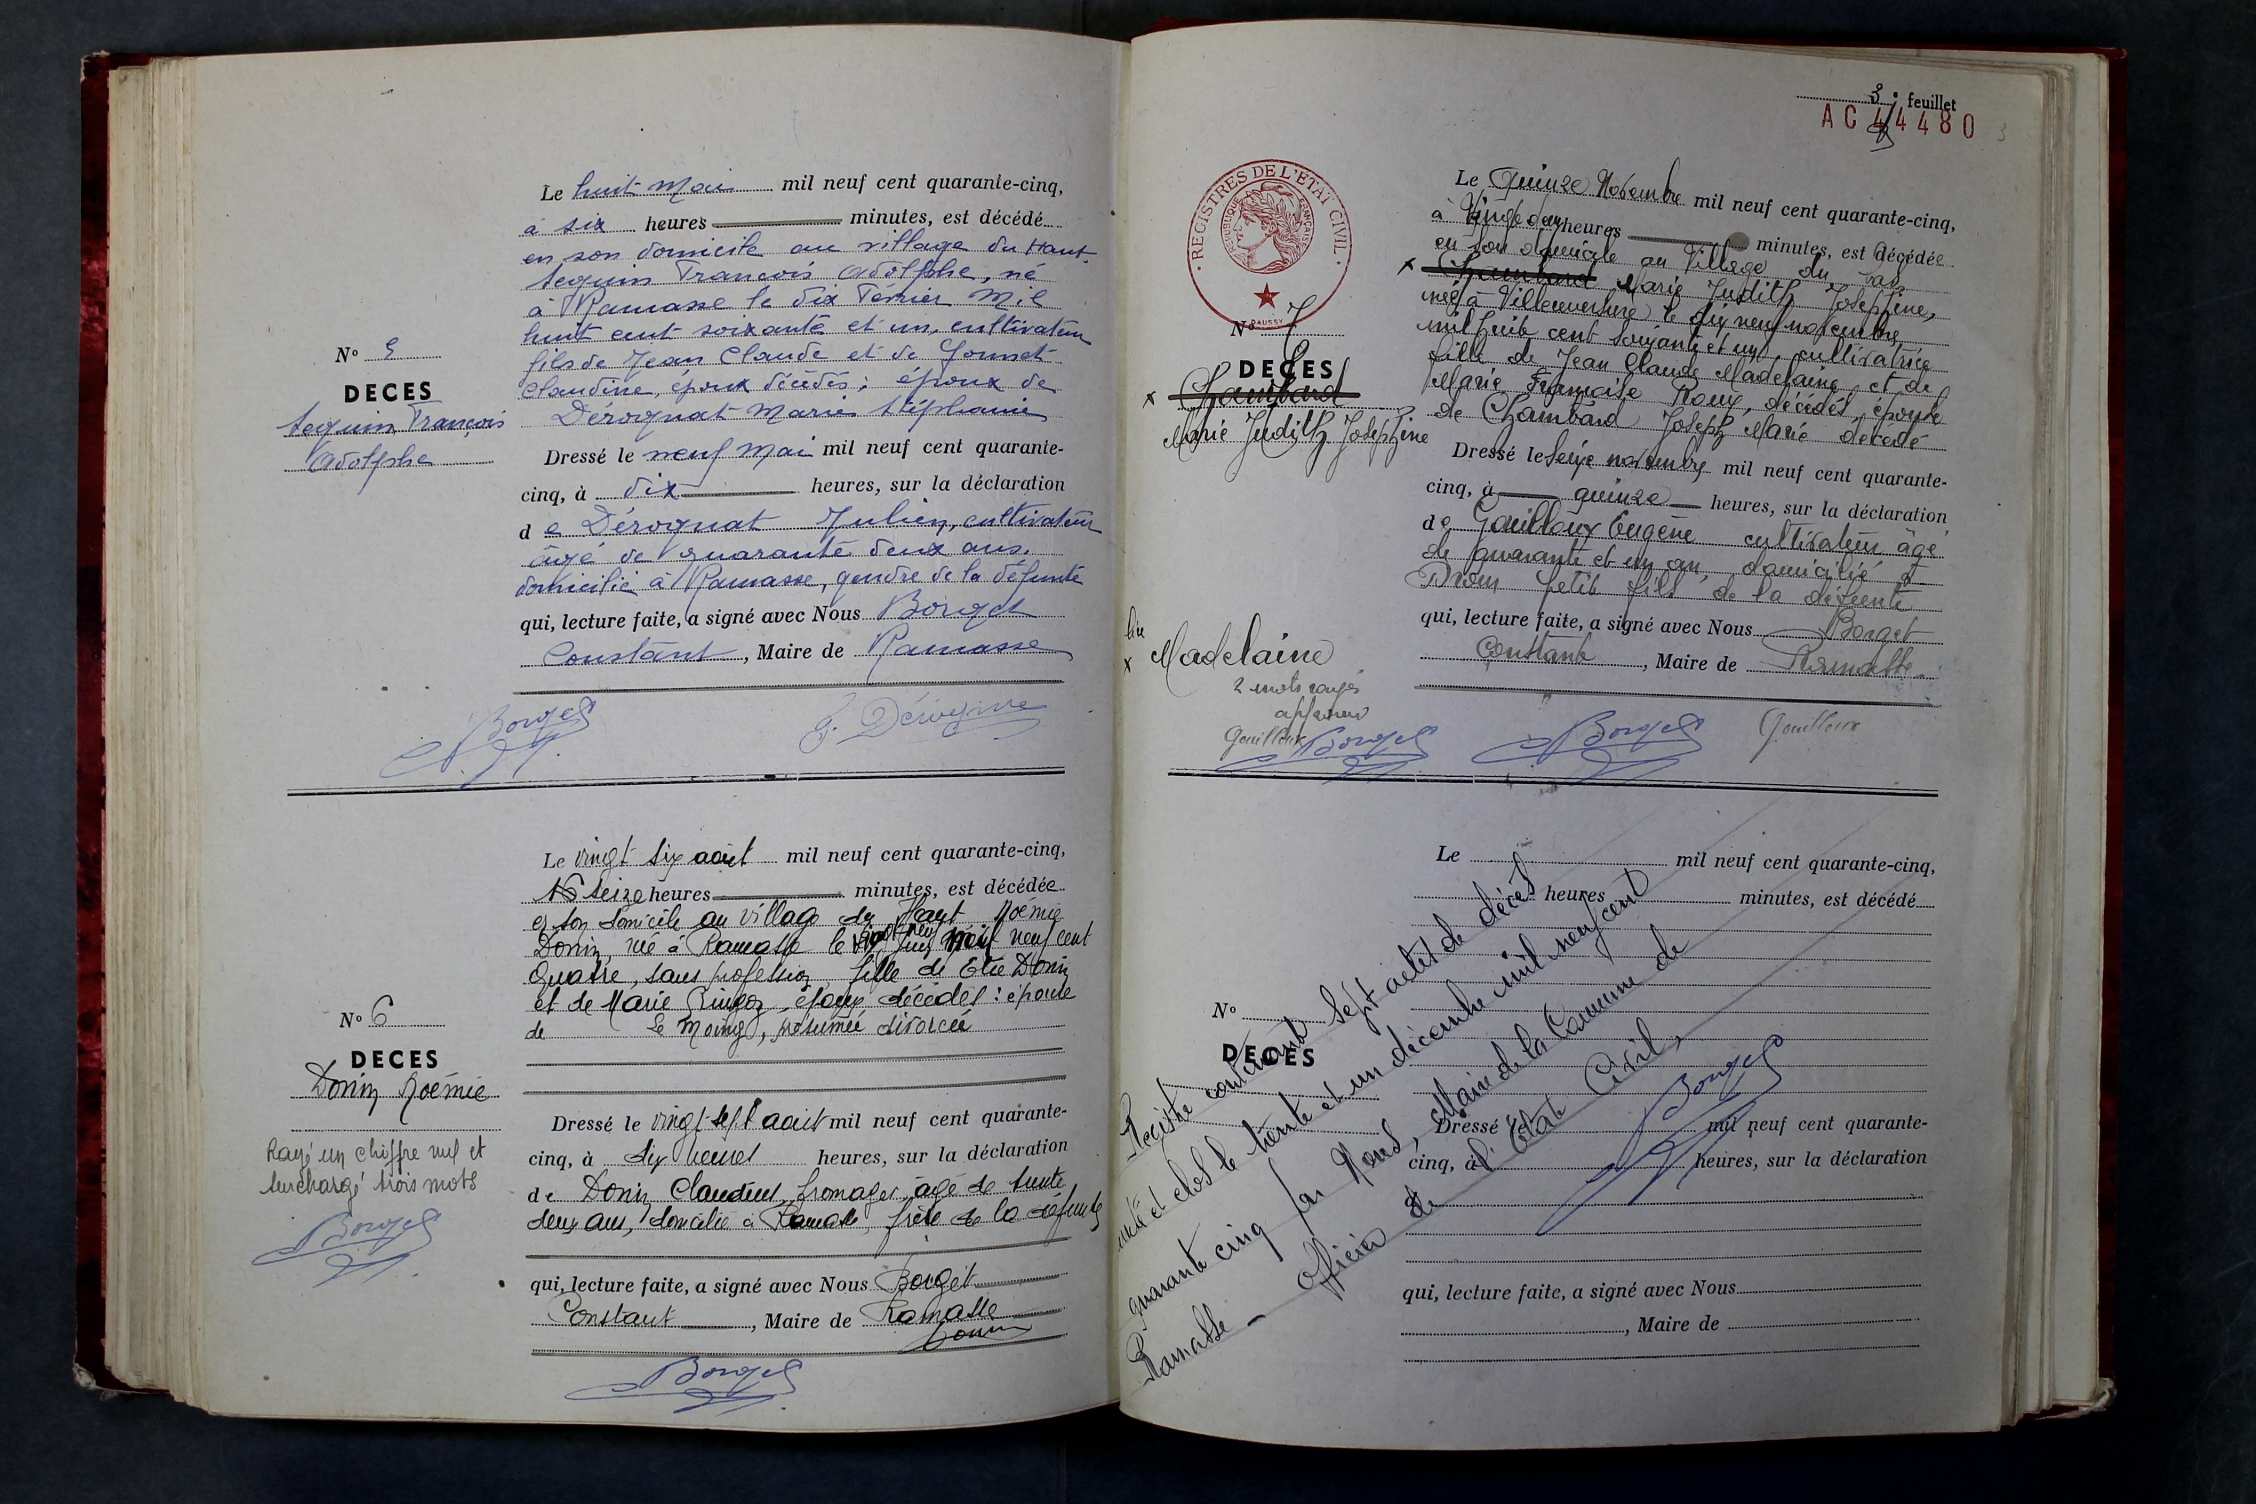 Le huit Mai mil neuf cent quarante-cinq,
à six heures minutes, est décédé
en son domicile au village du Haut
Seguin François Adolphe, né
à Ramasse le dix Février Mil
huit cent soixante et un, cultivateur
fils de Jean Claude et de Jonnet
Claudine, époux décédés; époux de
Dérognat Marie Stéphanie
N° 5
DECES
Seguin François
Adolphe
Dressé le neuf Mai mil neuf cent quarante-
cinq, à dix heures, sur la déclaration
de Dérognat Julien, cultivateur
âgé de quarante deux ans,
domicilié à Ramasse, gendre de la défunte
qui, lecture faite, a signé avec Nous Borget
Constant, Maire de Ramasse
Borget
Le vingt six août mil neuf cent quarante-cinq,
16 seize heures minutes, est décédée
en son domicile au village du Haut Noémie
Donin, née à Ramasse le neuf cent
quatre, sans profession, fille de Elie Donin
et de Marie époux décédés : épouse
de Le Moing, présumée divorcée
N° 6
DECES
Donin Noémie
Rayé un chiffre nul et
surchargé trois mots
Borget
Dressé le vingt-sept août mil neuf cent quarante-
cinq, à dix heures heures, sur la déclaration
de Donin Claudius, fromager, âgé de trente
deux ans, domicilié à Ramasse, frère de la défunte
qui, lecture faite, a signé avec Nous Borget
Constant, Maire de Ramasse
Donin
Borget
3e feuillet
AC 44480
3
REGISTRES DE L'ETAT CIVIL
REPUBLIQUE FRANÇAISE
DAUSSY
Le Quinze Novembre mil neuf cent quarante-cinq,
à Vingt deux heures minutes, est décédée
en son domicile au Village du bas
x Chambard Marie Judith Josephine,
née à Villereversure le dix neuf novembre
mil huit cent soixante et un, cultivatrice
fille de Jean Claude Madelaine et de
Marie Françoise Roux, décédés, épouse
de Chambard Joseph Marie décédé
N° 7
DECES
x Chambard
Marie Judith Josephine
Dressé le Seize novembre mil neuf cent quarante-
cinq, à quinze heures, sur la déclaration
de Gouilloux Eugène cultivateur âgé
de quarante et un an, domicilié à
Drom petit fils de la défunte
qui, lecture faite, a signé avec Nous Borget
Constant, Maire de Ramasse
lire
x Madelaine
2 mots rayés
Gouilloux Borget
Borget Gouilloux
Le mil neuf cent quarante-cinq,
heures minutes, est décédé
N°
DECES
Dressé le mil neuf cent quarante-
cinq, à heures, sur la déclaration
qui, lecture faite, a signé avec Nous
, Maire de
Registre contenant Sept actes de décès
arrêté et clos le trente et un décembre mil neuf cent
quarante cinq par Nous, Maire de la Commune de
Ramasse - Officier de l'Etat Civil,
Borget